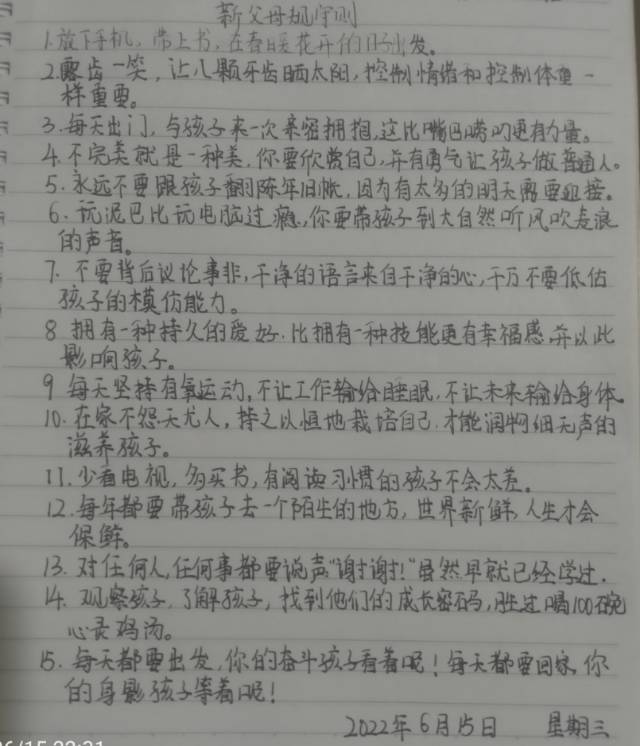 新父母规守则
1.放下手机,带上书,在春暖花开的日子出发。
2.露齿一笑,让八颗牙齿晒太阳,控制情绪和控制体重一
样重要。
3.每天出门,与孩子来一次亲密拥抱,这比嘴巴唠叨更有力量。
4.不完美就是一种美,你要欣赏自己,并有勇气让孩子做普通人。
5.永远不要跟孩子翻陈年旧帐,因为有太多的明天需要迎接。
6.玩泥巴比玩电脑过瘾,你要带孩子到大自然听风吹走浪
的声音。
7.不要背后议论事非,干净的语言来自干净的心,千万不要低估
孩子的模仿能力。
8 拥有一种持久的爱好.比拥有一种技能更有幸福感,并以此
影响孩子。
9 每天坚持有氧运动,不让工作输给睡眠,不让未来输给身体。
10.在家不怨天尤人,持之以恒地栽培自己.才能润物细无声的
滋养孩子。
11.少看电视,多买书,有阅读习惯的孩子不会太差。
12.每年都要带孩子去一个陌生的地方,世界新鲜,人生才会
保鲜。
13.对任何人,任何事都要说声"谢谢!"虽然早就已经学过.
14.观察孩子,了解孩子,找到他们的成长密码,胜过喝100碗
心灵鸡汤。
15.每天都要出发,你的奋斗孩子看着呢!每天都要回家,你
的身影孩子等着呢!
2022年6月15日 星期三